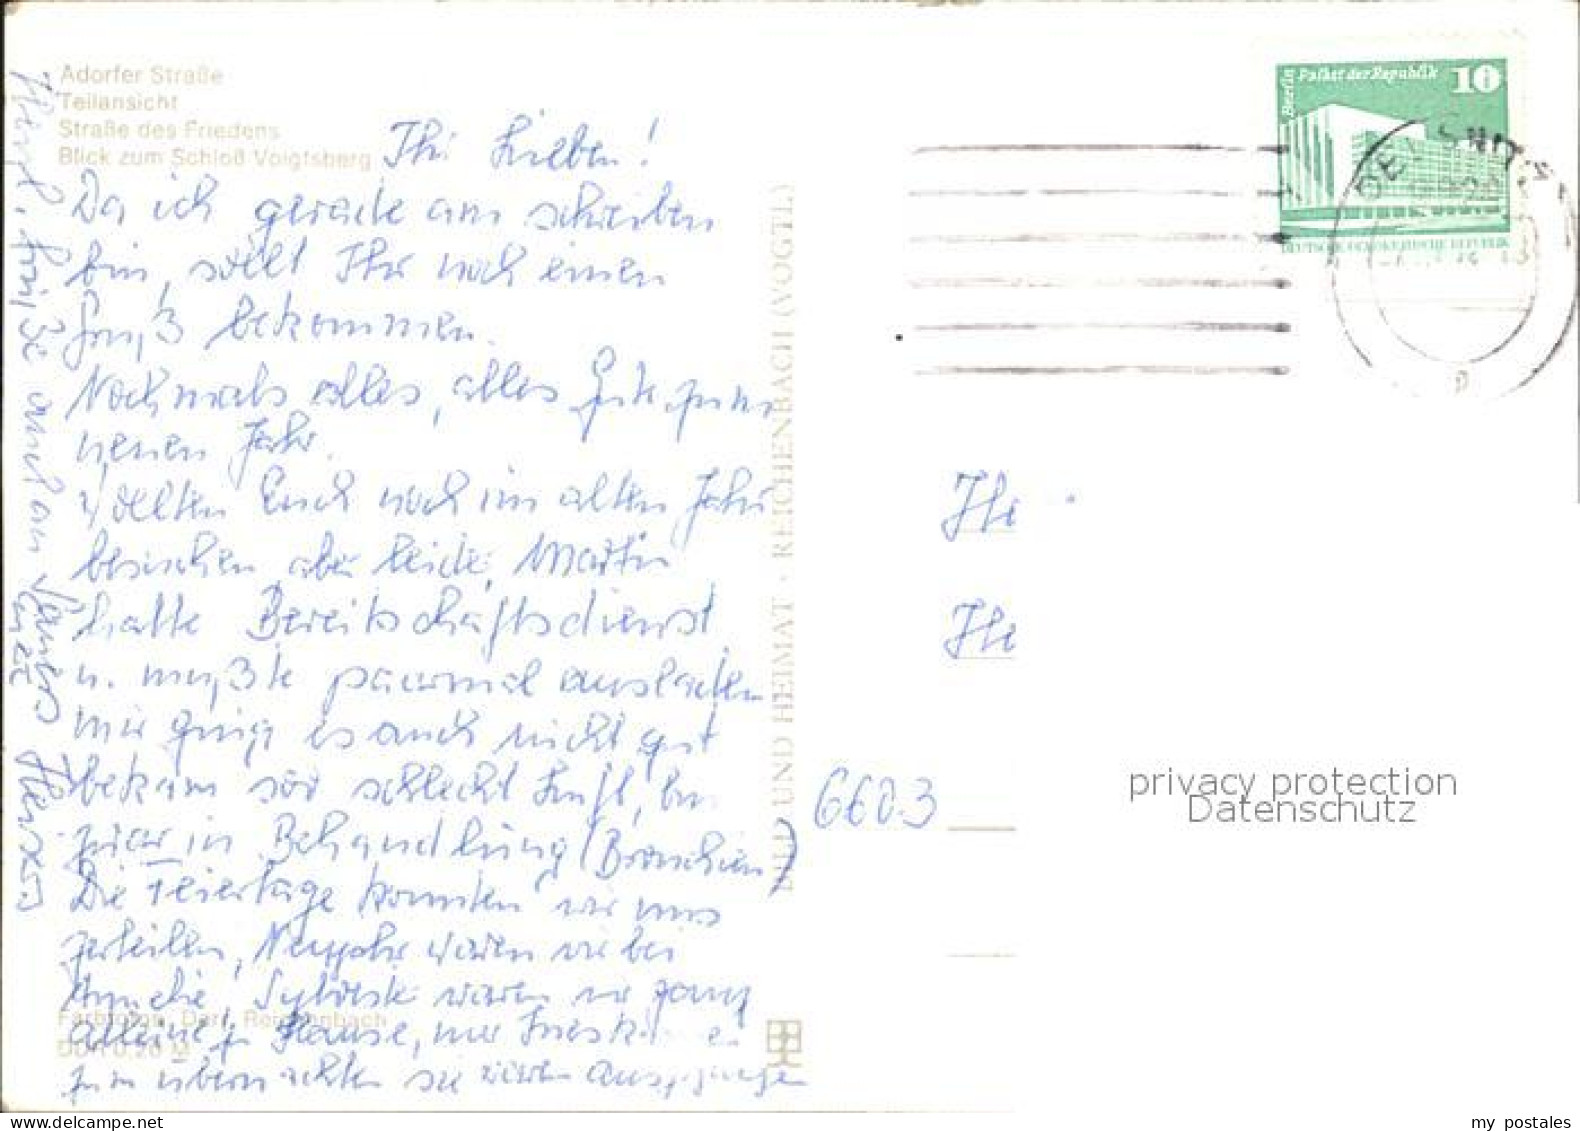 Adorfer Straße
Teilansicht
Straße des Friedens
Blick zum Schloß Voigtsberg
Ihr Lieben!
Da ich gerade am schreiben
bin, sollt Ihr noch einen
Gruß bekommen.
Nochmals alles, alles Gute zum
neuen Jahr.
Wollten Euch noch im alten Jahr
besuchen aber leider, Martin
hatte Bereitschaftsdienst
u. mußte paarmal ausladen
mir ging es auch nicht gut
bekam so schlecht Luft, bin
zwar in Behandlung (Bronchien)
Die Feiertage konnten wir uns
zerteilen, Neujahr waren wir bei
Sylvester waren wir ganz
alleine z. Hause, nur
zum übernachten sie waren ausgegangen
Grüße auch an
Farbfotos: Darr, Reichenbach
DDR 0,20 M
BILD UND HEIMAT · REICHENBACH (VOGTL)
Berlin Palast der Republik 10
DEUTSCHE DEMOKRATISCHE REPUBLIK
OELSNITZ
He
He
6603
privacy protection
Datenschutz
www.delcampe.net
my postales